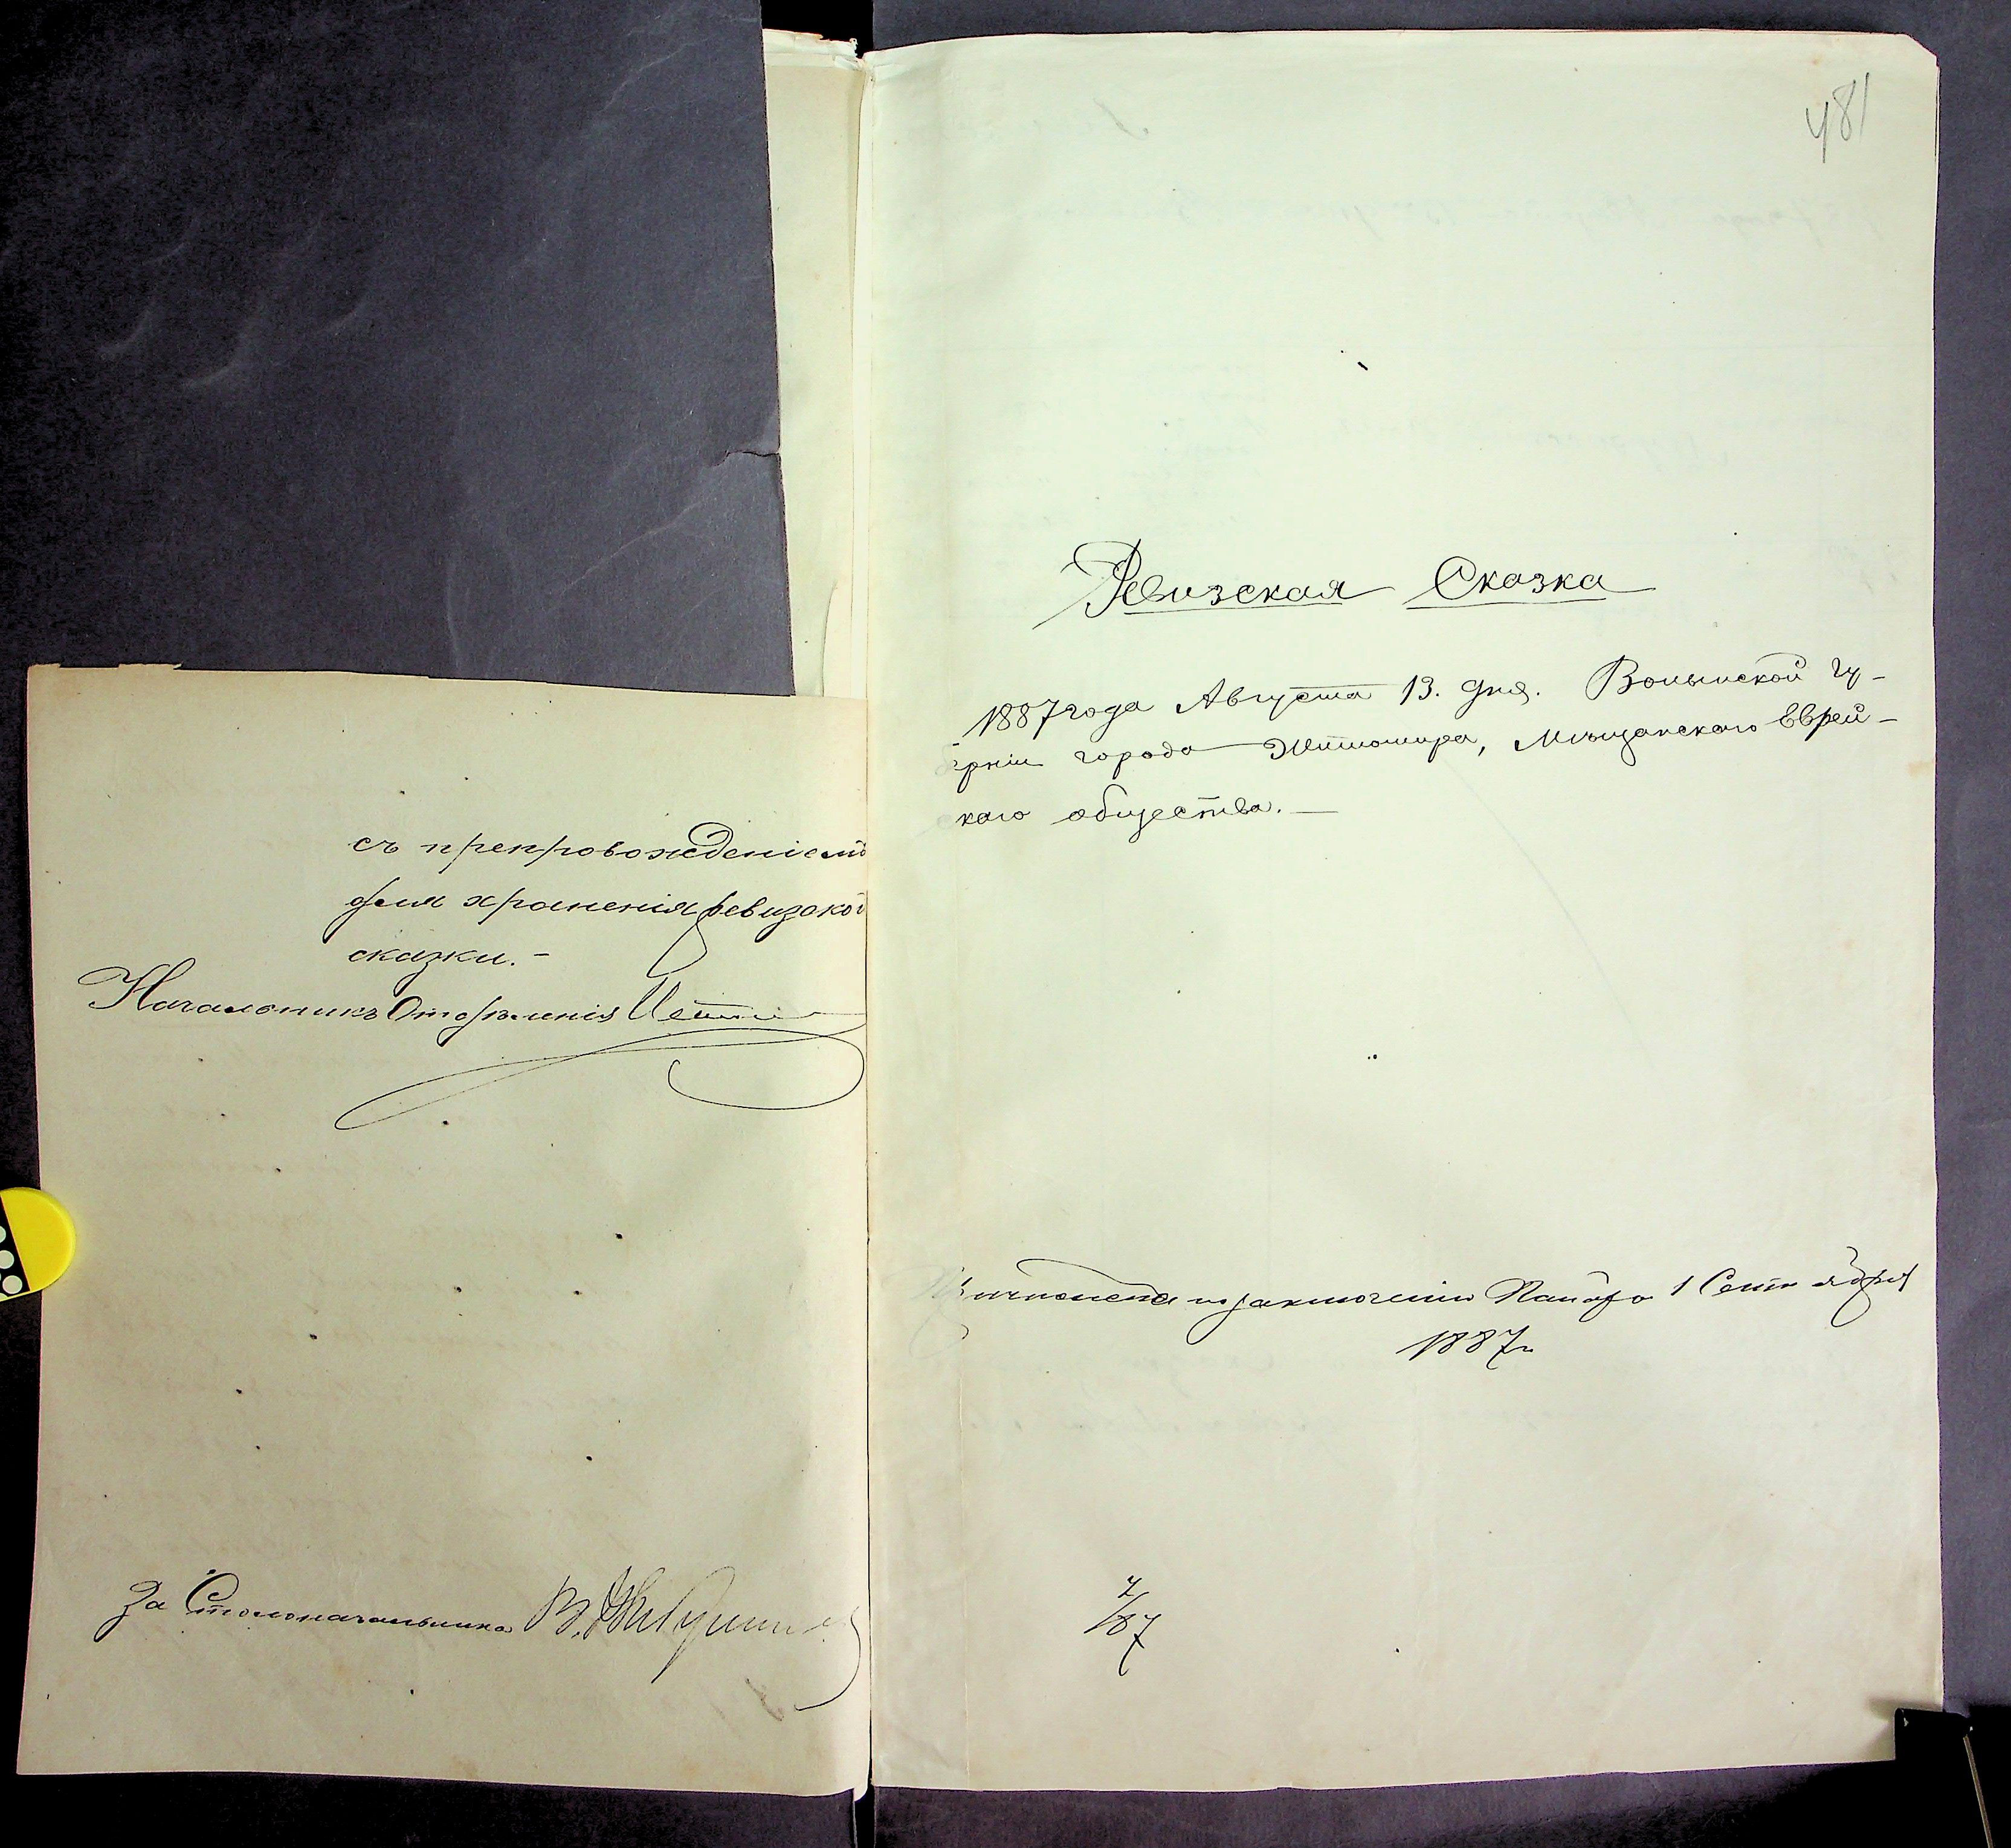 съ препровожденіемъ
для храненія ревизской
сказки.-
Начальникъ Отдѣленія
За Столоначальника В.
481
Ревизская Сказка
1887 года Августа 13. дня. Волынской гу-
берніи города Житомира, Мѣщанскаго Еврей-
скаго общества.—
по заключенію Палаты 1 Сентября
1887 г.
4/87